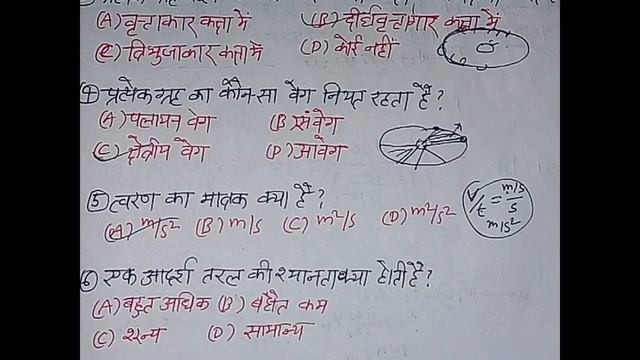 (A) वृत्ताकार कक्षा में (B) दीर्घवृत्ताकार कक्षा में
(C) त्रिभुजाकार कक्षा में (D) कोई नहीं
④ प्रत्येक ग्रह का कौन-सा वेग नियत रहता है?
(A) पलायन वेग (B) संवेग
(C) क्षेत्रीय वेग (D) आवेग
⑤ त्वरण का मात्रक क्या है? V/t = m/s/s
(A) m/s² (B) m/s (C) m²/s (D) m²/s² m/s²
⑥ एक आदर्श तरल की श्यानता क्या होती है?
(A) बहुत अधिक (B) बहोत कम
(C) शून्य (D) सामान्य